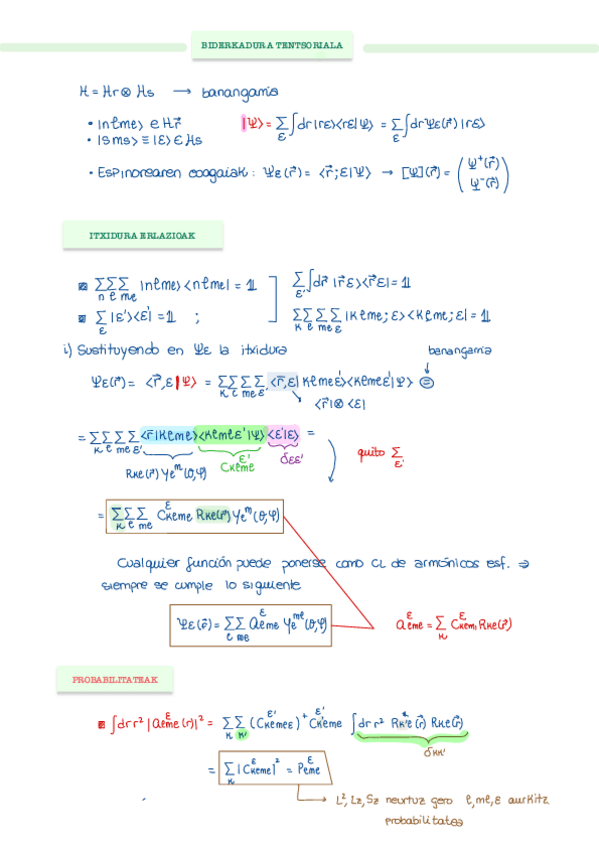 BIDERKADURA TENTSORIALA
H = Hr ⊗ Hs → banangarria
• |nℓmℓ> ∈ Hr⃗   |Ψ> = Σ_ε ∫dr |rε><rε|Ψ> = Σ_ε ∫dr Ψε(r⃗) |rε>
• |s ms> ≡ |ε> ∈ Hs
• Espinorearen osagaiak : Ψε(r⃗) = <r⃗;ε|Ψ> → [Ψ](r⃗) = (Ψ⁺(r⃗) Ψ⁻(r⃗))
ITXIDURA ERLAZIOAK
Σ_n Σ_ℓ Σ_mℓ |nℓmℓ><nℓmℓ| = 𝟙   Σ_ε' ∫dr⃗ |r⃗ε><r⃗ε| = 𝟙
Σ_ε |ε'><ε'| = 𝟙 ;   Σ_K Σ_ℓ Σ_mℓ Σ_ε |Kℓmℓ;ε><Kℓmℓ;ε| = 𝟙
i) Sustituyendo en Ψε la itxidura   banangarria
Ψε(r⃗) = <r⃗,ε|Ψ> = Σ_K Σ_ℓ Σ_mℓ Σ_ε' <r⃗,ε|Kℓmℓε'><Kℓmℓε'|Ψ> =
<r⃗|⊗<ε|
= Σ_K Σ_ℓ Σ_mℓ Σ_ε' <r⃗|Kℓmℓ><Kℓmℓε'|Ψ><ε'|ε> =   quito Σ_ε'
RKℓ(r) Yℓᵐ(θ,φ)   C^ε'_Kℓmℓ   δεε'
= Σ_K Σ_ℓ Σ_mℓ C^ε_Kℓmℓ RKℓ(r⃗) Yℓᵐ(θ,φ)
Cualquier función puede ponerse como CL de armónicos esf. ⇒
siempre se cumple lo siguiente
Ψε(r⃗) = Σ_ℓ Σ_mℓ a^ε_ℓmℓ Yℓ^mℓ(θ,φ)   a^ε_ℓmℓ = Σ_K C^ε_Kℓmℓ RKℓ(r⃗)
PROBABILITATEAK
∫dr r² |a^ε_ℓmℓ(r)|² = Σ_K Σ_K' (C^ε'_Kℓmℓε)⁺ C^ε'_K'ℓmℓ ∫dr r² R*_K'ℓ(r⃗) RKℓ(r⃗)
δKK'
= Σ_K |C^ε_Kℓmℓ|² = P^ε_ℓmℓ
L², Lz, Sz neurtuz gero ℓ, mℓ, ε aurkitz
probabilitatea